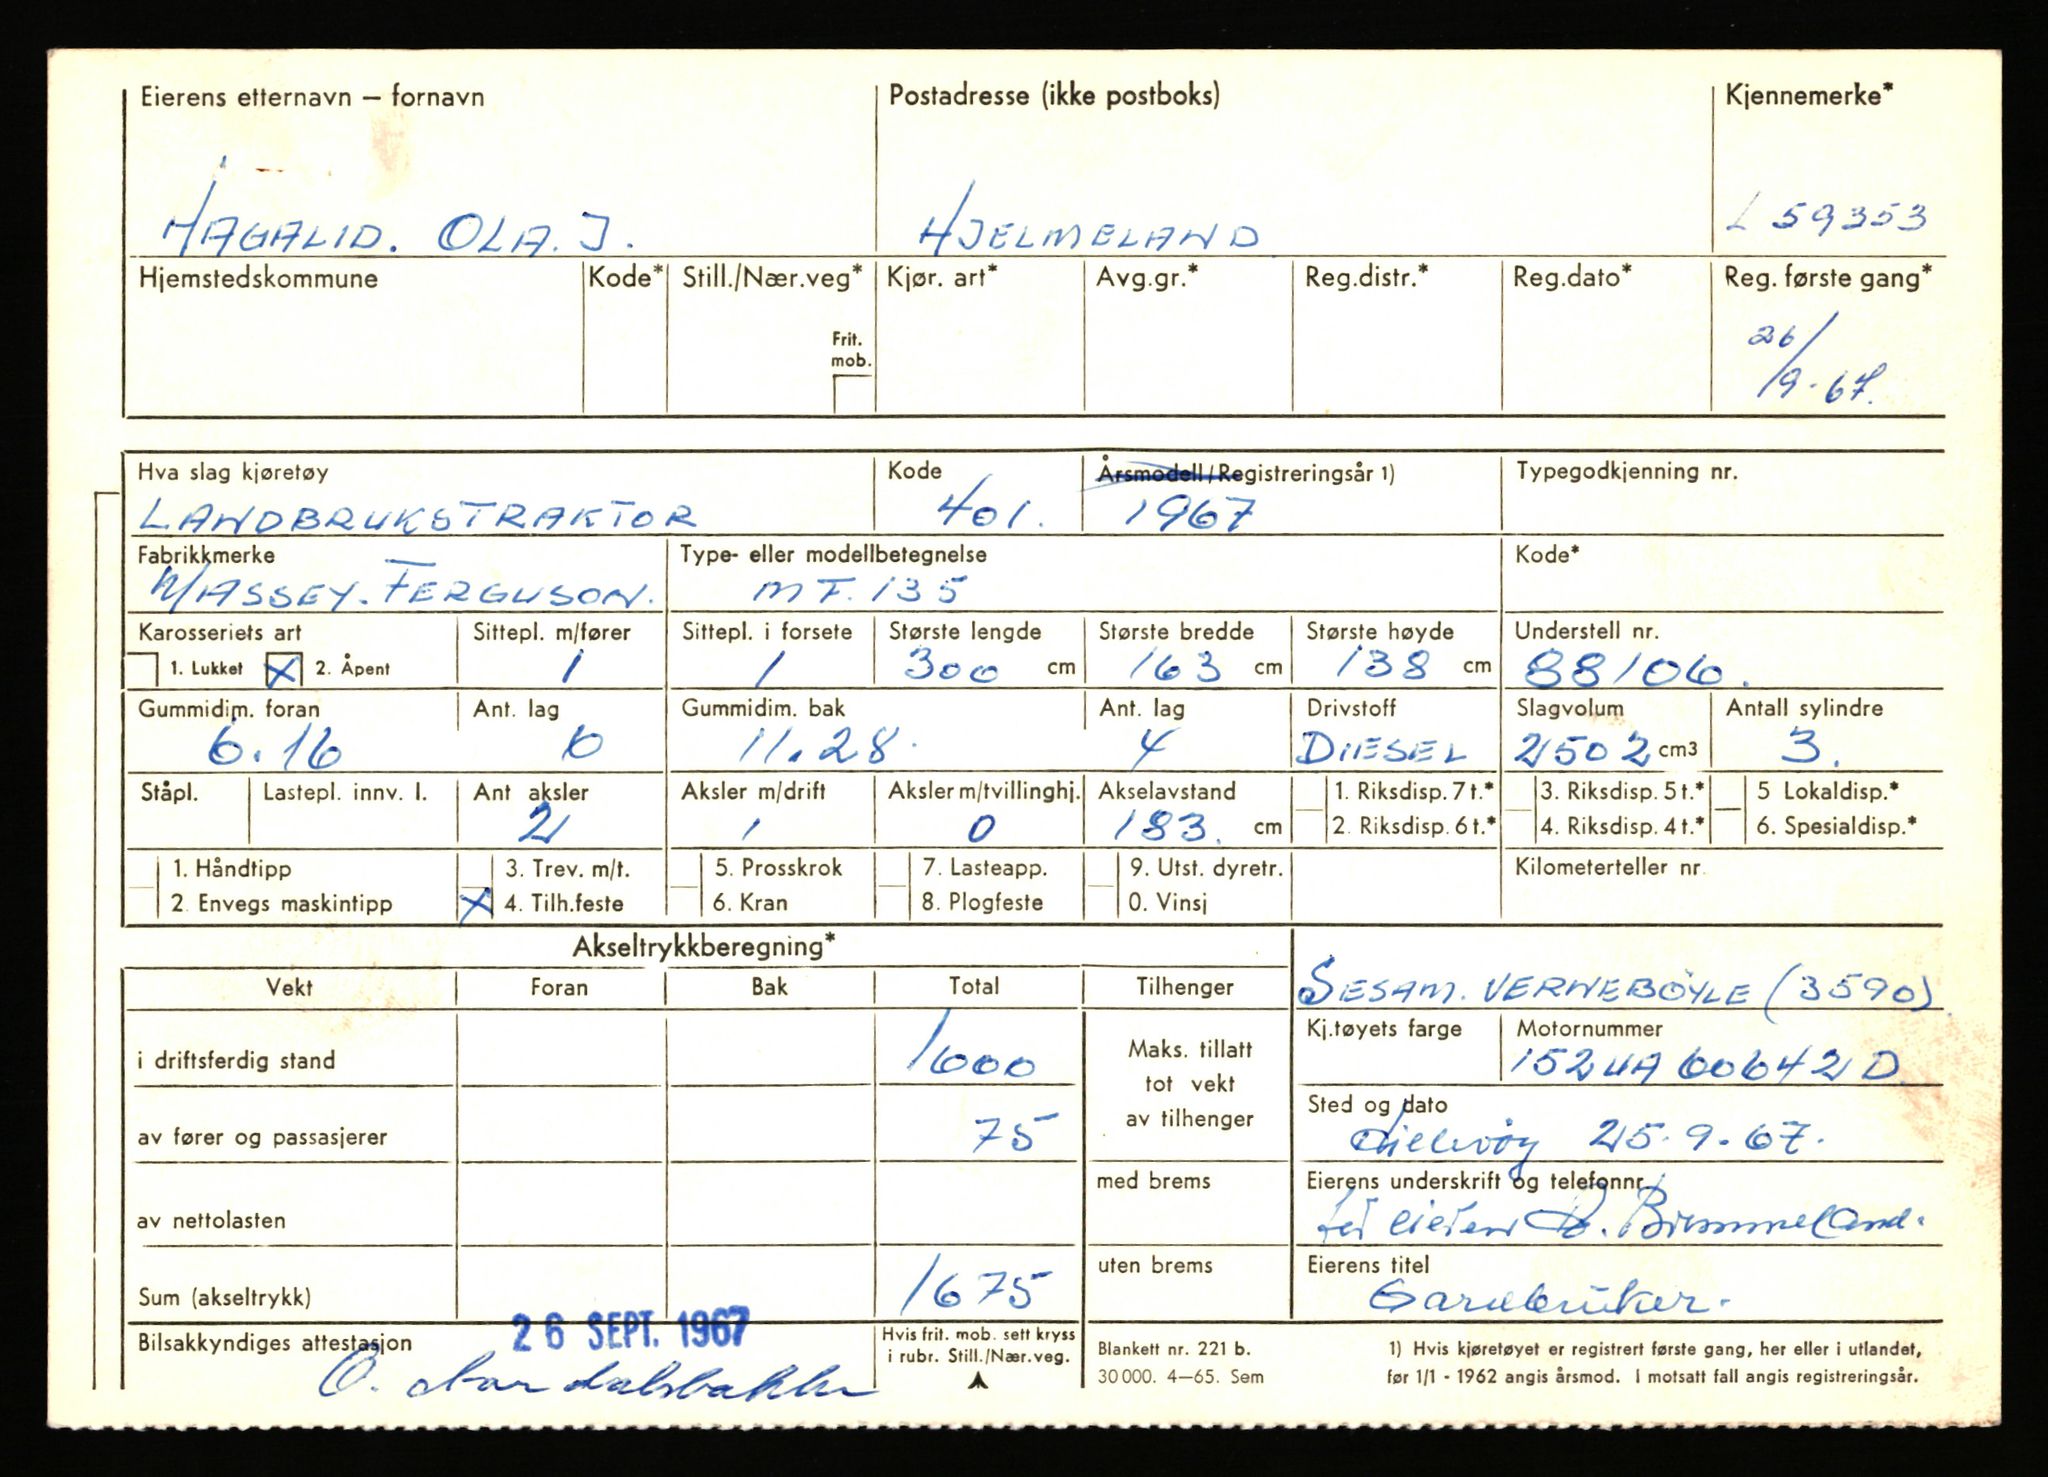 Eierens etternavn – fornavn Postadresse (ikke postboks) Kjennemerke*
HAGALID. OLA. J. HJELMELAND L 59353
Hjemstedskommune Kode* Still./Nær.veg* Kjør. art* Avg.gr.* Reg.distr.* Reg.dato* Reg. første gang*
Frit. mob.
26/9-67.
Hva slag kjøretøy Kode Årsmodell/Registreringsår 1) Typegodkjenning nr.
LANDBRUKSTRAKTOR 401. 1967
Fabrikkmerke Type- eller modellbetegnelse Kode*
MASSEY. FERGUSON. MF. 135
Karosseriets art Sittepl. m/fører Sittepl. i forsete Største lengde Største bredde Største høyde Understell nr.
1. Lukket X 2. Åpent 1 1 300 cm 163 cm 138 cm 88106.
Gummidim. foran Ant. lag Gummidim. bak Ant. lag Drivstoff Slagvolum Antall sylindre
6.16 6 11.28. 4 DIESEL 2502 cm3 3.
Ståpl. Lastepl. innv. l. Ant aksler Aksler m/drift Aksler m/tvillinghj. Akselavstand 1. Riksdisp. 7 t.* 3. Riksdisp. 5 t.* 5 Lokaldisp.*
2 1 0 183. cm 2. Riksdisp. 6 t.* 4. Riksdisp. 4 t.* 6. Spesialdisp.*
1. Håndtipp 3. Trev. m/t. 5. Prosskrok 7. Lasteapp. 9. Utst. dyretr. Kilometerteller nr.
2. Envegs maskintipp X 4. Tilh.feste 6. Kran 8. Plogfeste 0. Vinsj
Akseltrykkberegning*
Vekt Foran Bak Total Tilhenger SESAM. VERNEBÖYLE (3590)
Kj.tøyets farge Motornummer
i driftsferdig stand 1600 Maks. tillatt tot vekt av tilhenger 152UA60642D
Sted og dato
av fører og passasjerer 75 25.9.67.
med brems Eierens underskrift og telefonnr.
av nettolasten Brommeland.
uten brems Eierens titel
Sum (akseltrykk) 1675 Gardbruker.
26 SEPT. 1967
Bilsakkyndiges attestasjon Hvis frit. mob. sett kryss i rubr. Still./Nær.veg. Blankett nr. 221 b. 1) Hvis kjøretøyet er registrert første gang, her eller i utlandet,
O. 30 000. 4–65. Sem før 1/1 - 1962 angis årsmod. I motsatt fall angis registreringsår.